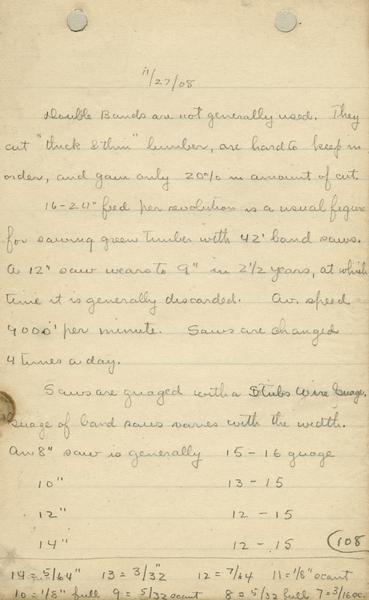 11/27/08
Double Bands are not generally used. They
cut "thick & thin" lumber, are hard to keep in
order, and gain only 20% in amount of cut.
16-24" feed per revolution is a usual figure
for sawing green timber with 42' band saws.
A 12" saw wears to 9" in 2 1/2 years, at which
time it is generally discarded. Av. speed
9000' per minute. Saws are changed
4 times a day.
Saws are guaged with a Stubs Wire Guage.
Guage of band saws varies with the width.
An 8" saw is generally 15-16 guage
10" 13-15
12" 12-15
14" 12-15 108
14 = 5/64" 13 = 3/32" 12 = 7/64 11 = 1/8" scant
10 = 1/8" full 9 = 5/32 scant 8 = 5/32 full 7 = 3/16 sc.